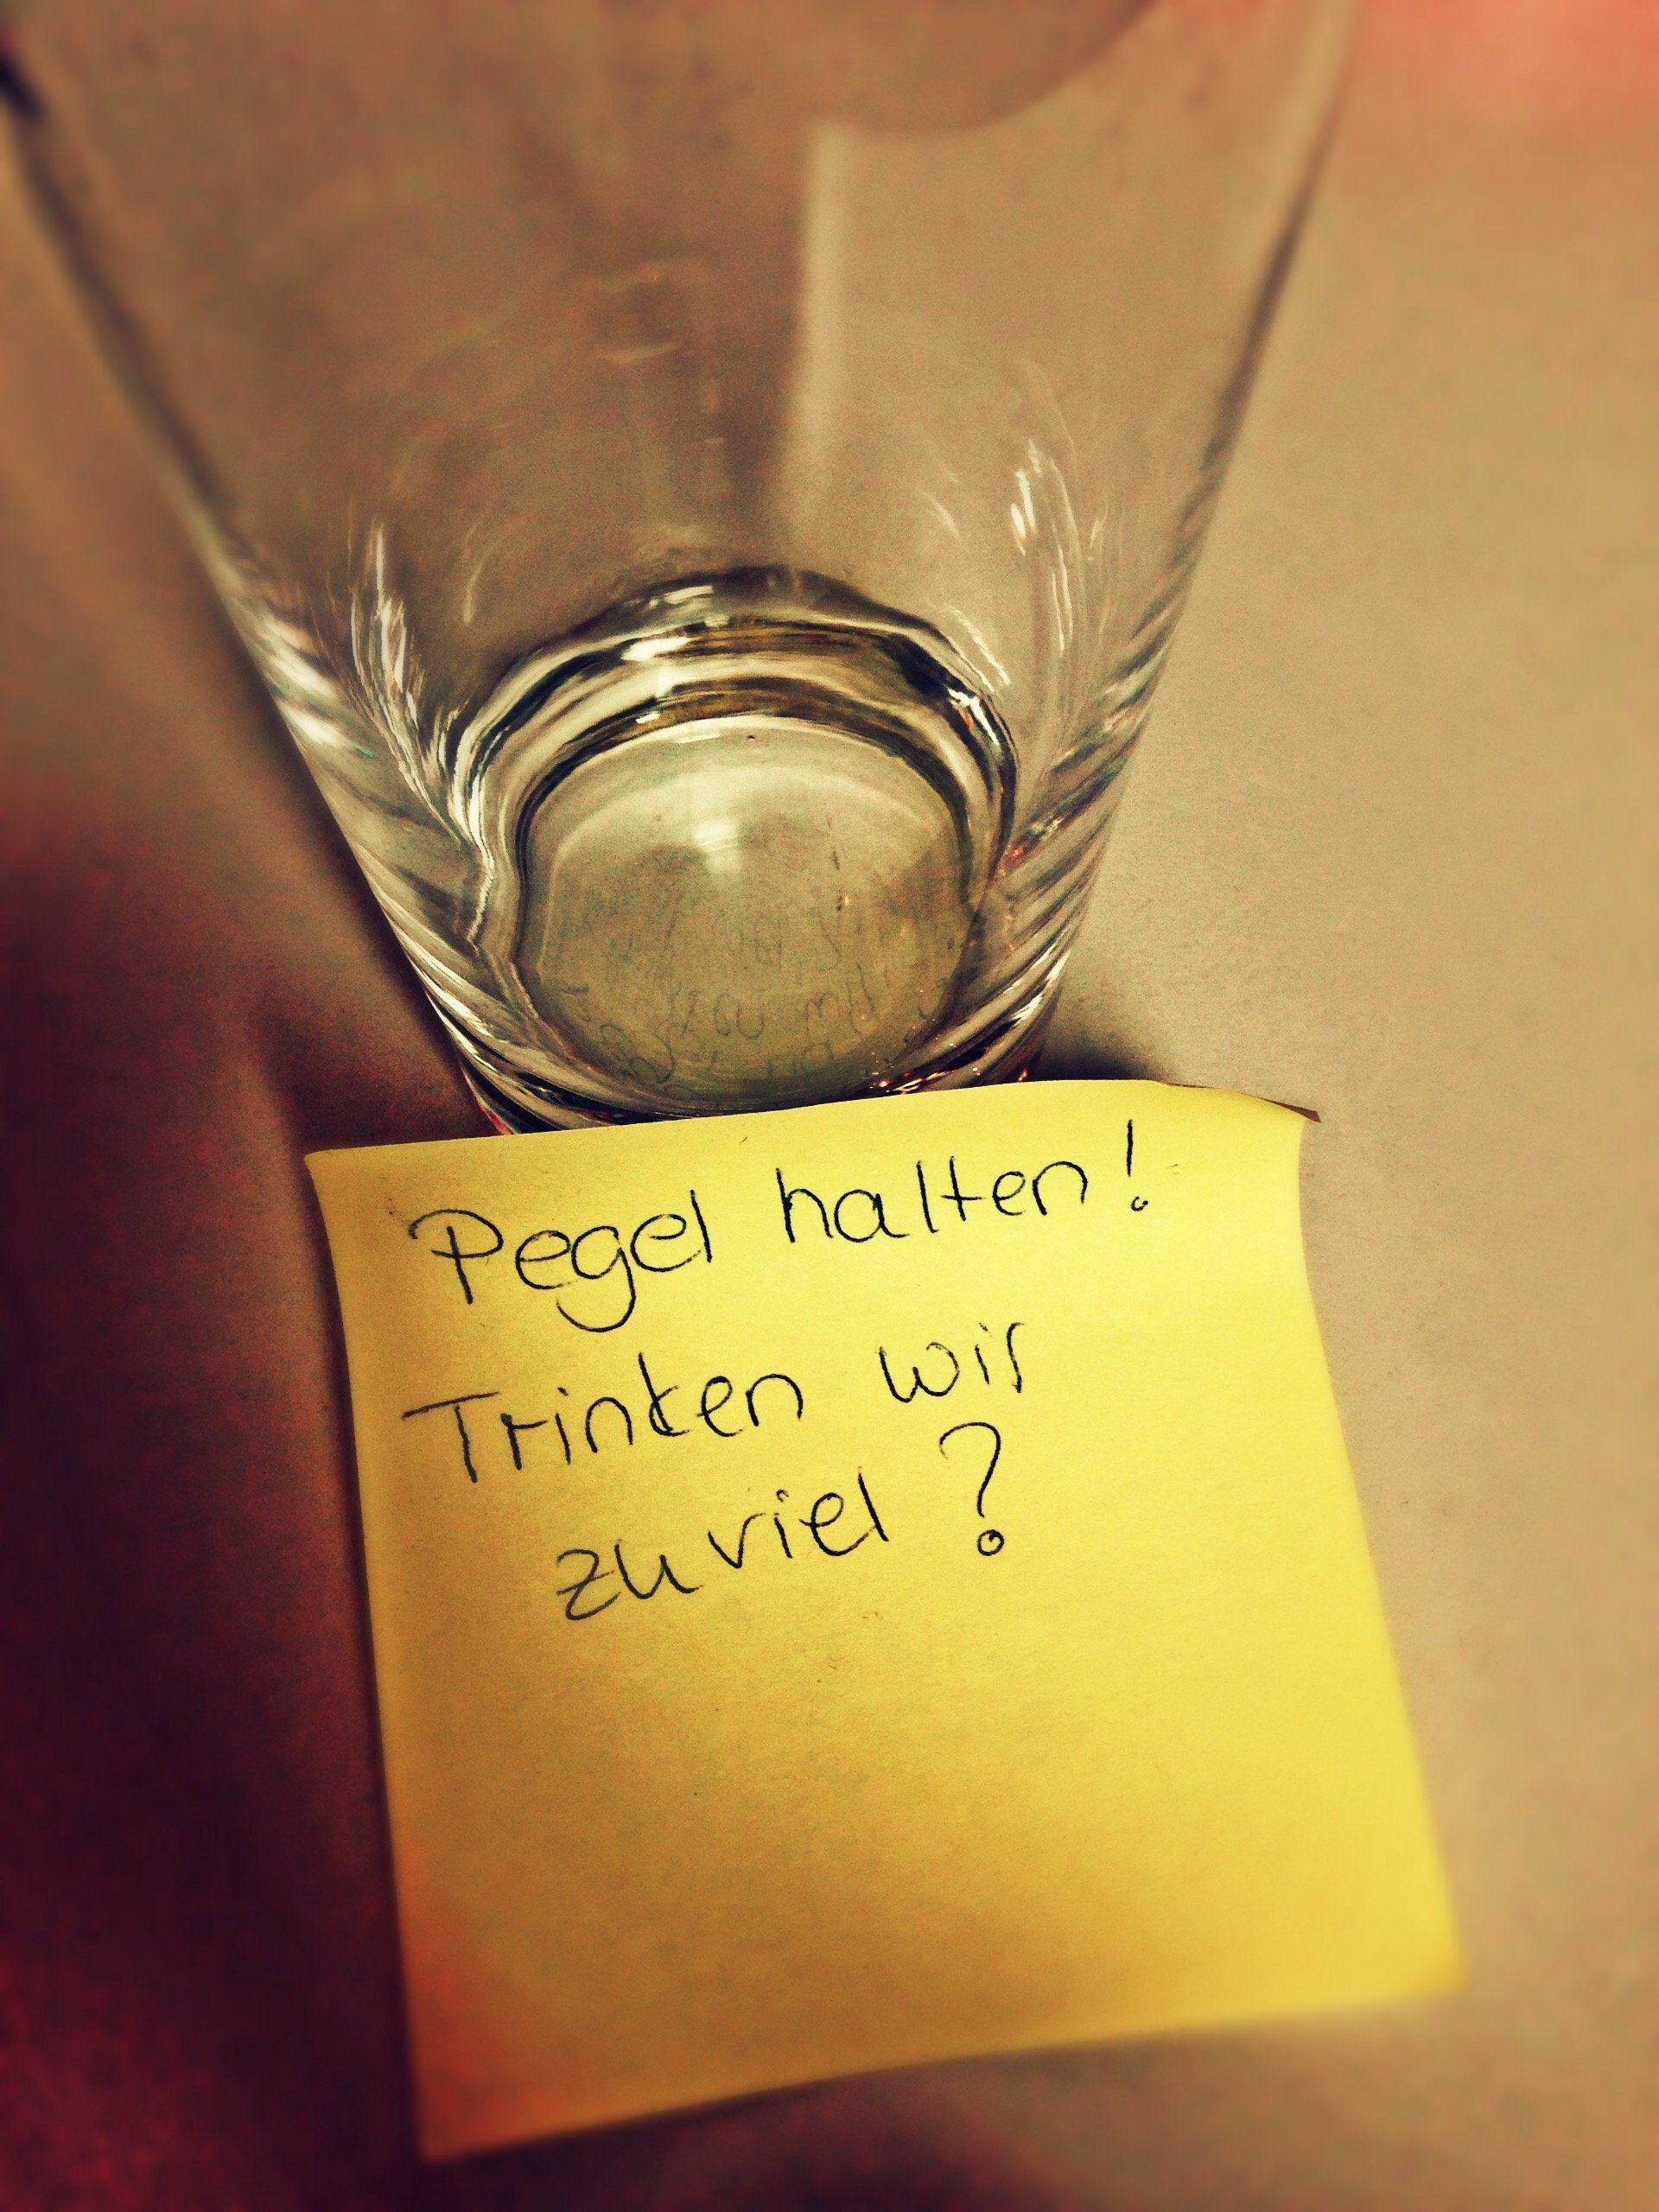 Pegel halten!
Trinken wir
zuviel?